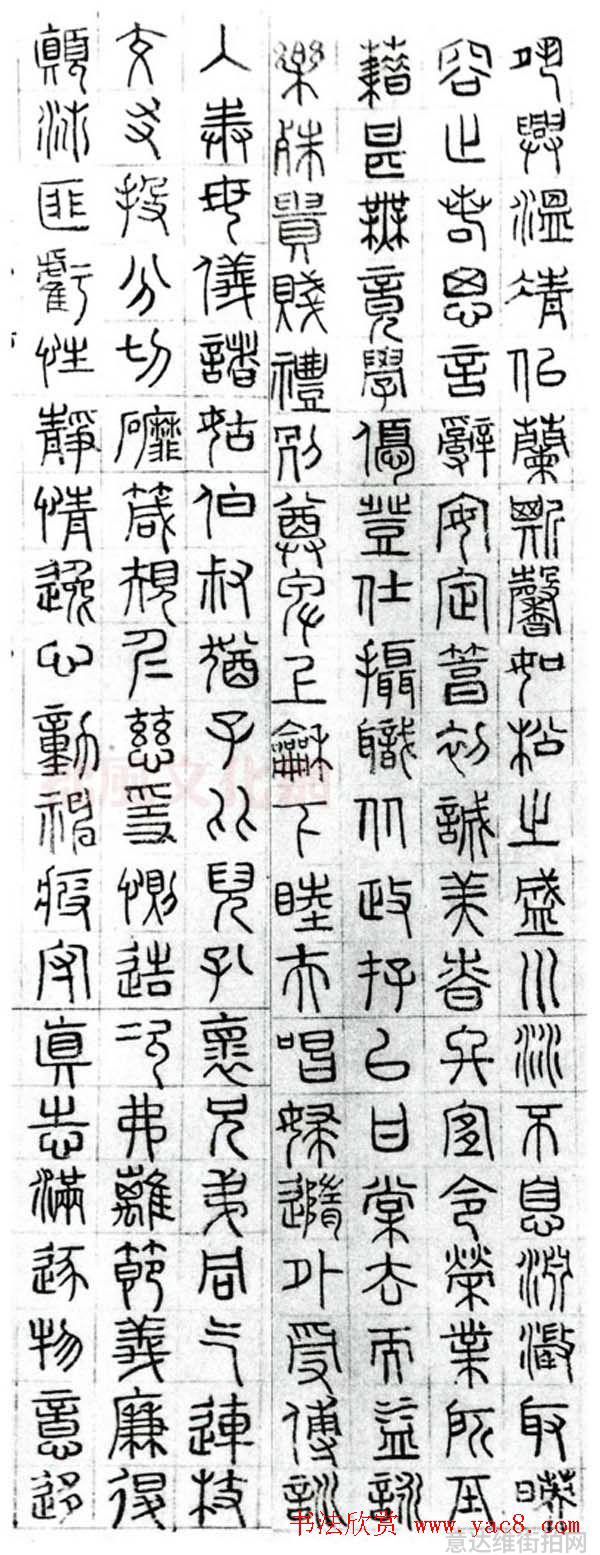 夙興溫凊似蘭斯馨如松之盛川流不息淵澂取映
容止若思言辭安定篤初誠美昚終宜令榮業所基
籍甚無竟學優登仕攝職從政存以甘棠去而益詠
樂殊貴賤禮別尊卑上龢下睦夫唱婦隨外受傅訓
入奉母儀諸姑伯叔猶子比兒孔懷兄弟同气連枝
交友投分切磨箴規仁慈隱惻造次弗離節義廉退
顛沛匪虧性靜情逸心動神疲守真志滿逐物意移
书法欣赏 www.yac8.com
意达维街拍网